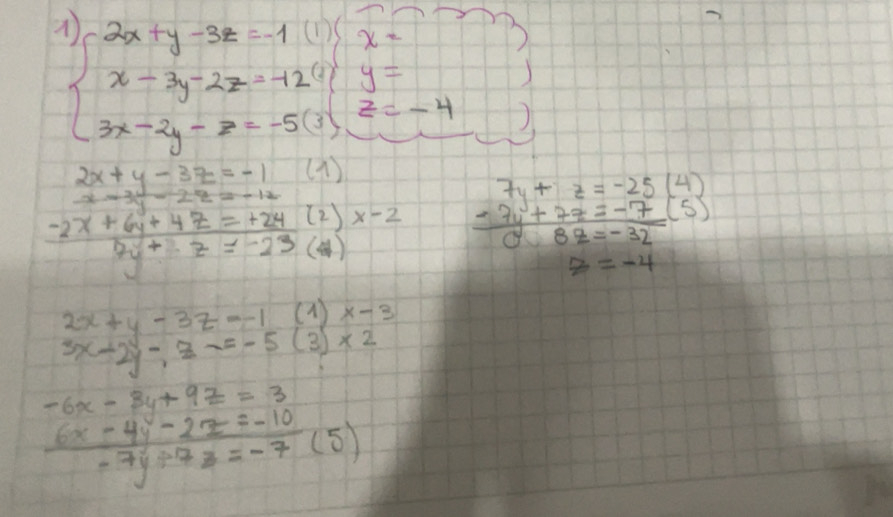 1) 2x + y - 3z = -1 (1) x =
x - 3y - 2z = -12 (2) y =
3x - 2y - z = -5 (3) z = -4
2x + y - 3z = -1 (1)
x - 3y - 2z = -12
-2x + 6y + 4z = +24 (2) x -2
7y + z = -23 (4)
7y + z = -25 (4)
- 7y + 7z = -7 (5)
0 8z = -32
z = -4
2x + y - 3z = -1 (1) x -3
3x - 2y - z = -5 (3) x 2
-6x - 3y + 9z = 3
6x - 4y - 2z = -10
- 7y + 7z = -7 (5)